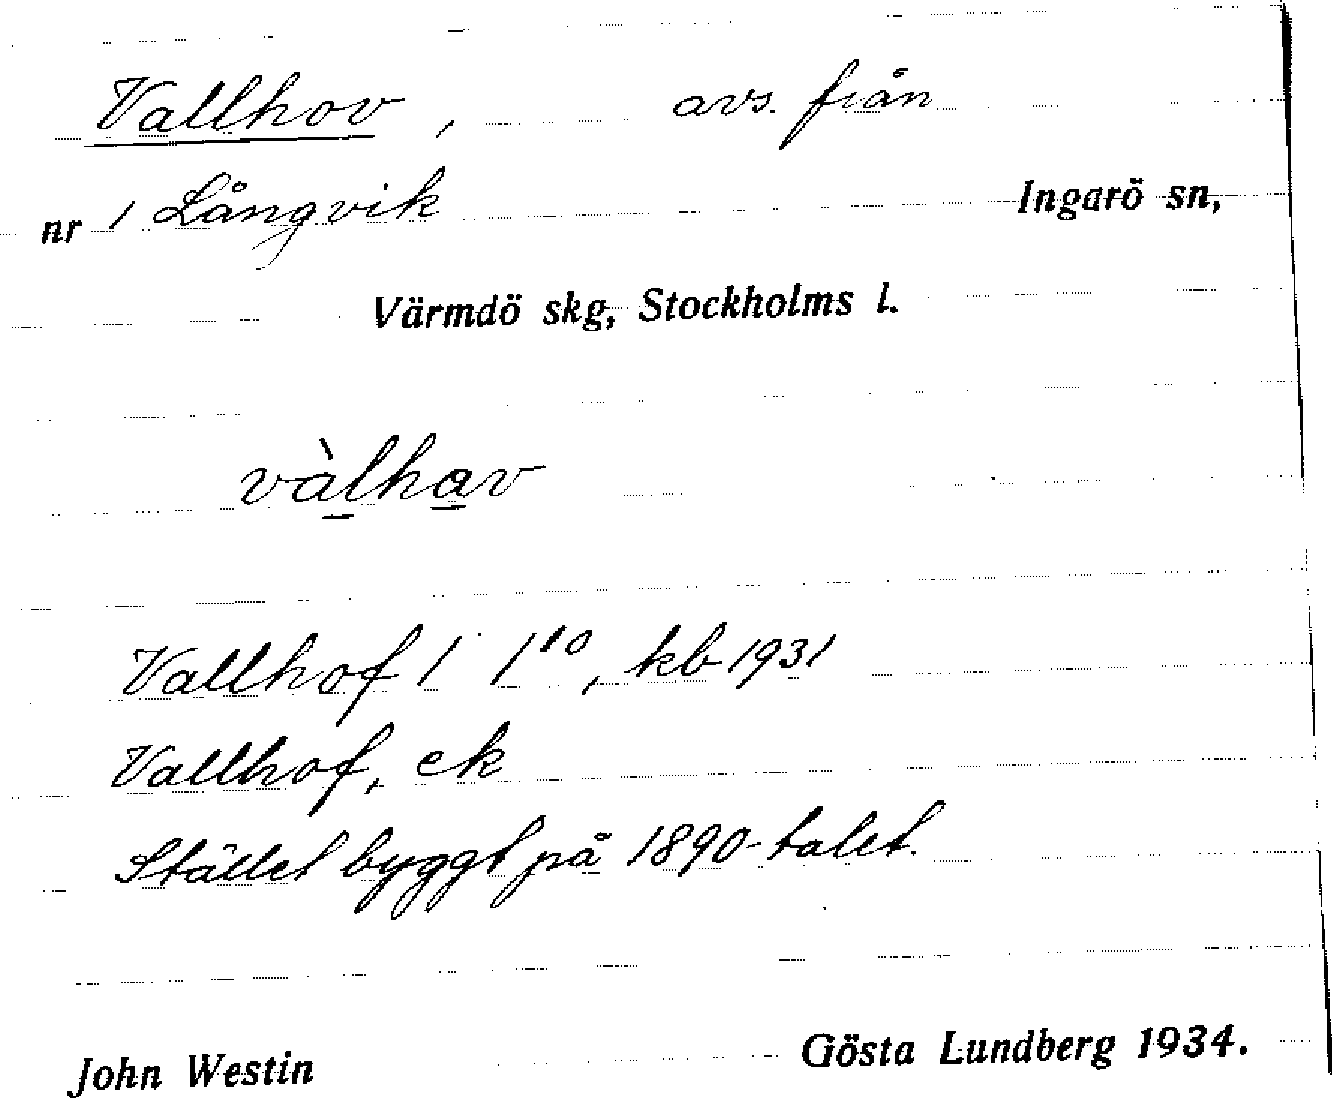 Vallhov, avs. från
nr 1 Långvik Ingarö sn,
Värmdö skg, Stockholms l.
vàlhav
Vallhof 1 1¹⁰, kb 1931
Vallhof, ek
Stället byggt på 1890-talet.
John Westin Gösta Lundberg 1934.